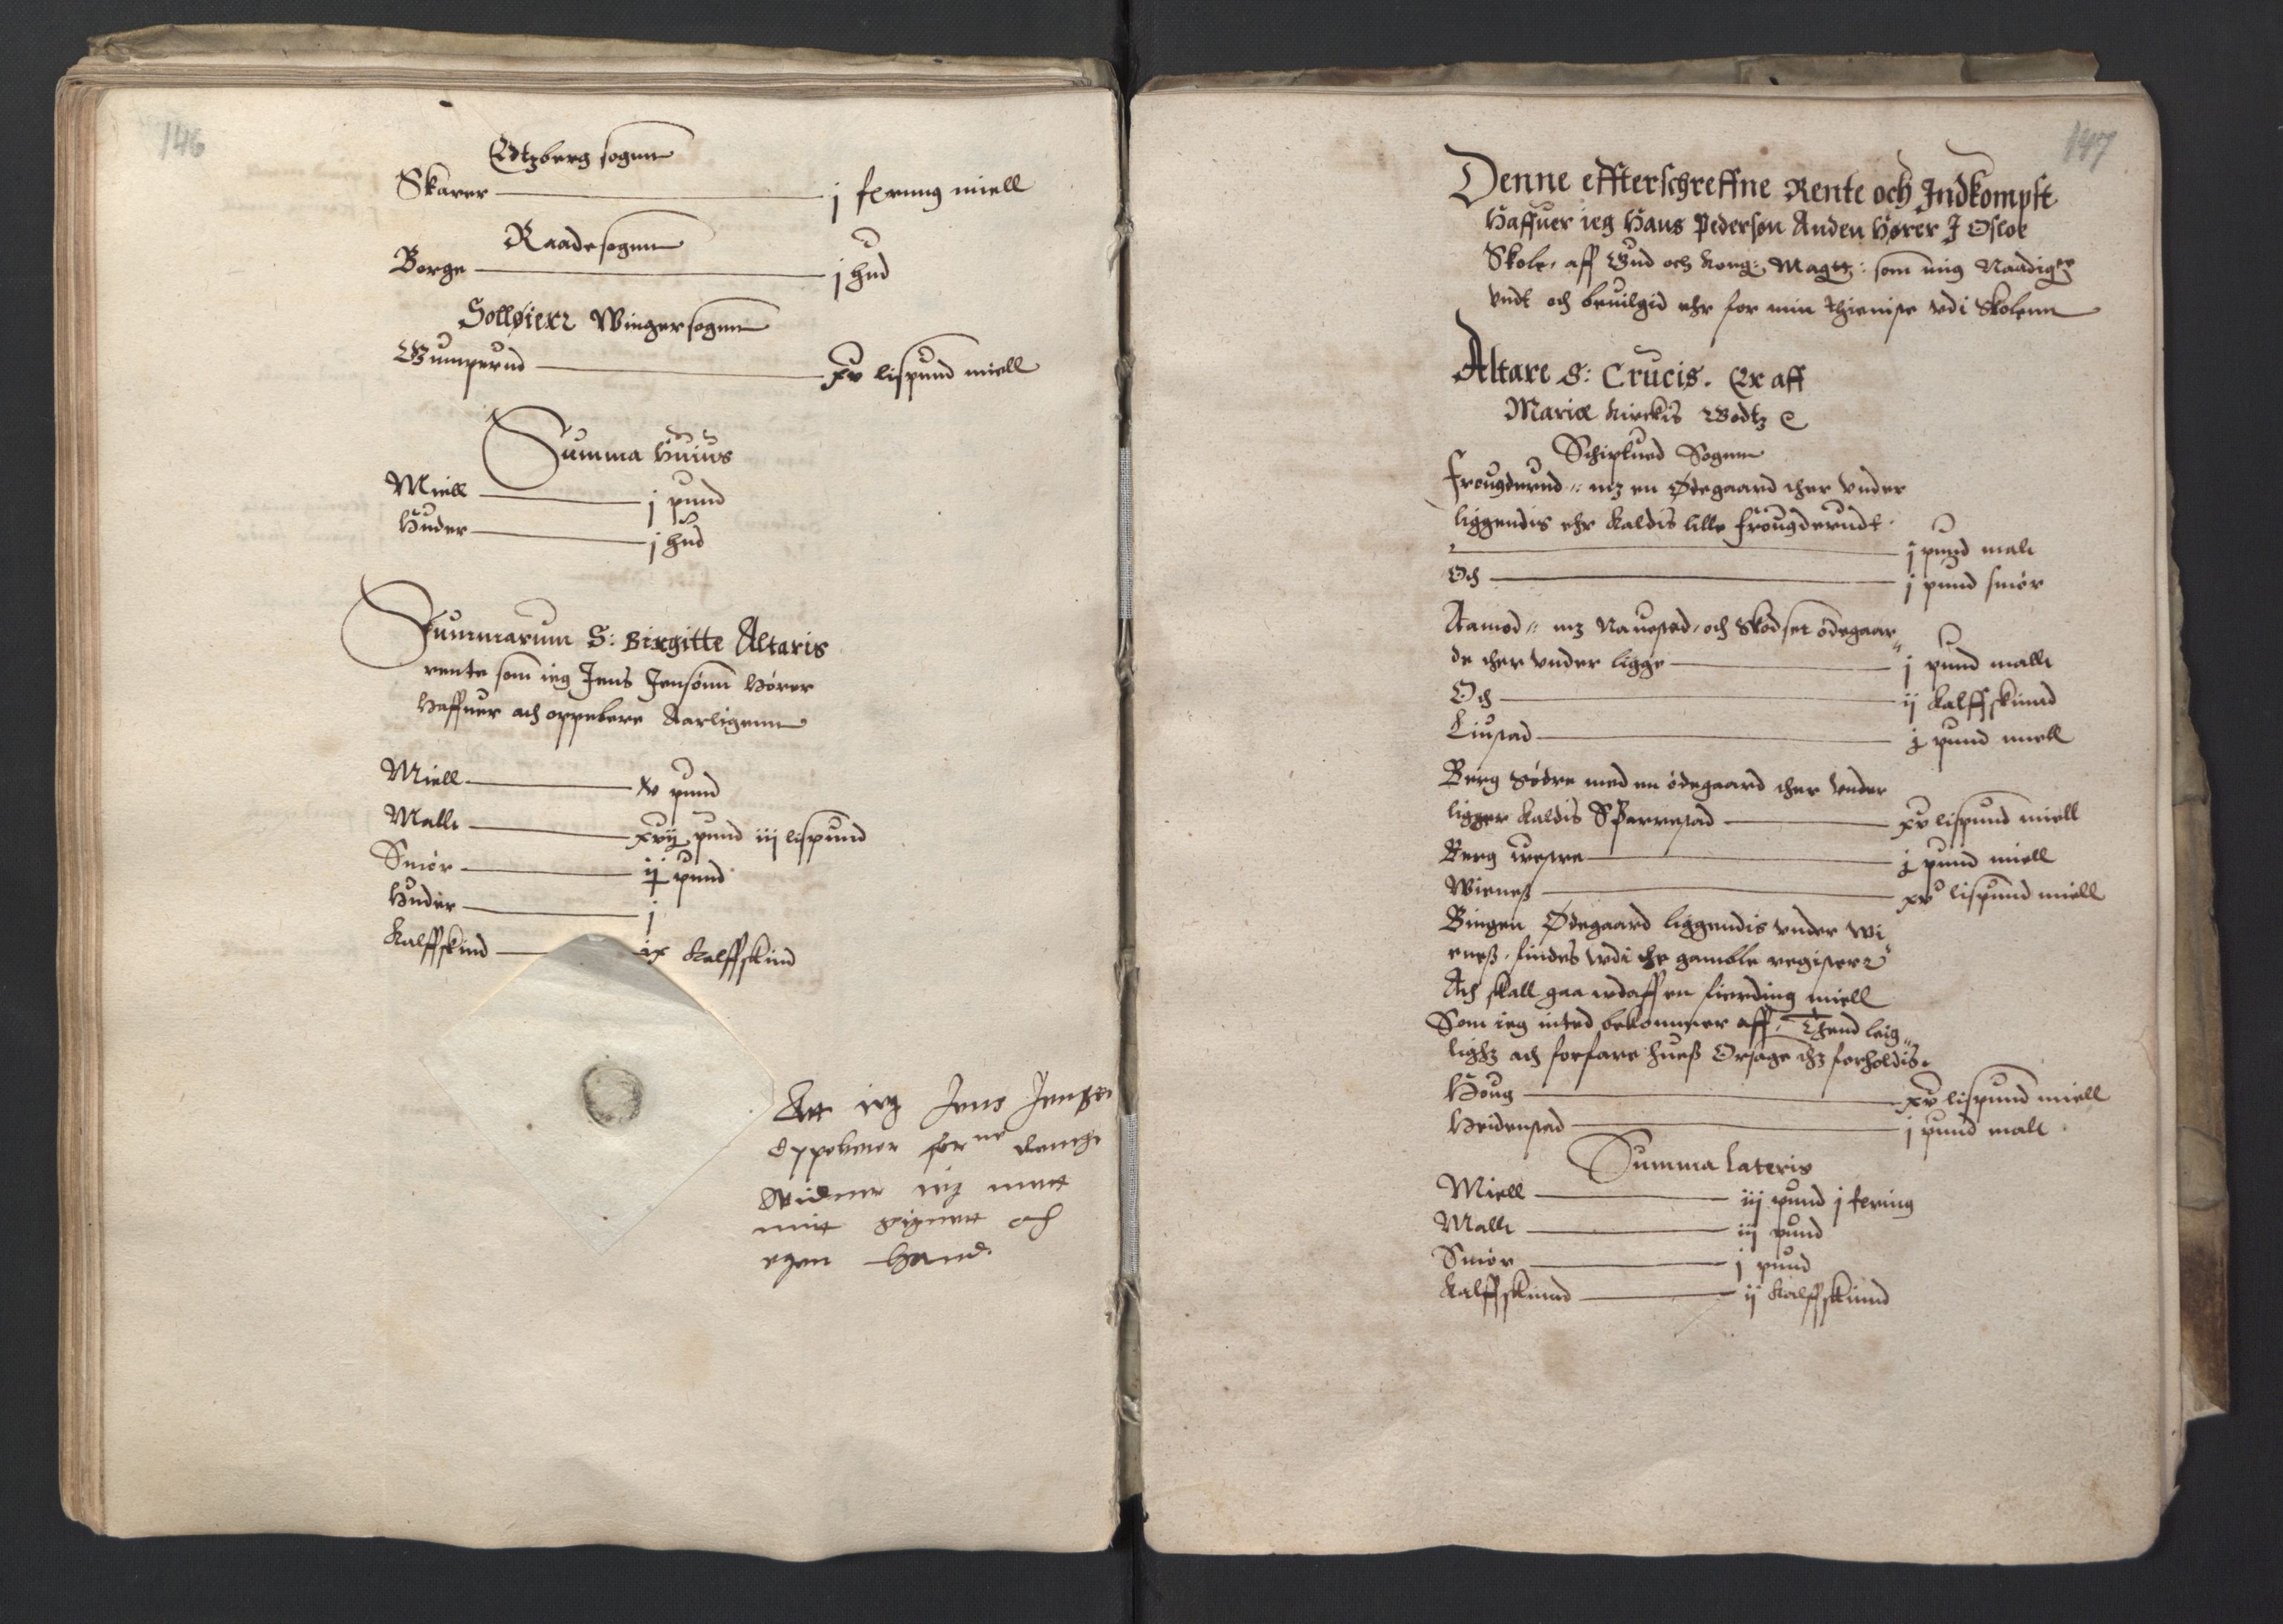 146
Edtzberg sognn
Skarer — j fering miell
Raade sognn
Borge — j hud
Solløierr Winger sognn
Gumperud — xv lispund miell
Summa Huius
Miell — j pund
Huder — j hud
Summarum S: Birgitte Altaris
rente som ieg Jens Jensønn Hører
Haffuer ach oppebere Aarligenn
Miell — xv pund
Mallt — xvij pund iij lispund
Smør — ij pund
Huder — j
Kalffskind — ix Kalffskind
Att ieg Jens Jenssen
Oppeberer for ne
Widner ieg mett
mitt signett och
egen Hand.
147
Denne effterschreffne Rente och Indkompst
Haffuer ieg Hans Pedersøn Anden Hører J Osloe
Skole, aff Gud och Kong: Magtz: som mig Naadigst
undt och beuilgid ehr for min thieniste udi Skolenn
Altare S: Crucis. Er aff
Mariæ Kirckis Godtz
Schiptued Sognn
Frougderud mz en Ødegaard ther under
liggendis ehr kaldis lille Frougderudt
j pund malt
Och — j pund smør
Aamod mz Nauestad, och Skodset ødegaar
de ther under ligge — j pund mallt
Och — ij Kalffskind
Liustad — j pund miell
Berg Sødre med en ødegaard ther under
ligger kaldis Sparrestad — xv lispund miell
Berg westre — j pund miell
Wieneß — xv lispund miell
Bingen Ødegaard liggendis under Wi
eneß, findes udi the gamble registerr
Ath skall gaa udaff en fierding miell
Som ieg inted bekommer aff, Thend leig
lighz ath forfare hueß Orsage thz forholdis.
Houg — xv lispund miell
Heidenstad — j pund malt
Summa lateris
Miell — iij pund j fering
Mallt — iij pund
Smør — j pund
Kalffskind — ij Kalffskind